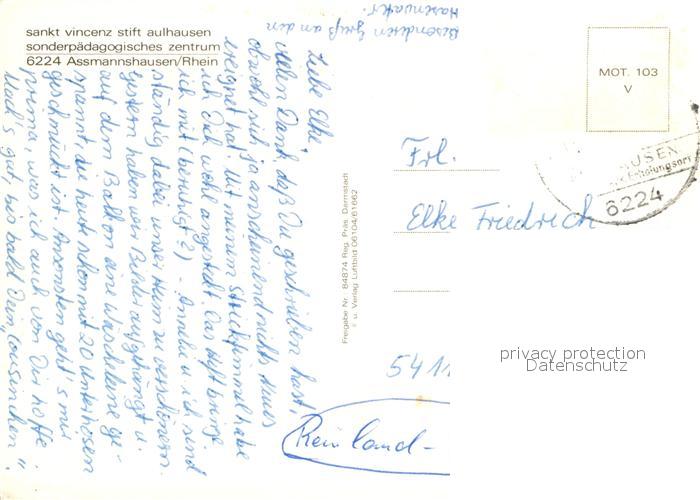 sankt vincenz stift aulhausen
sonderpädagogisches zentrum
6224 Assmannshausen/Rhein
Besonderen Gruß an den
Hasenvater.
Liebe Elke,
vielen Dank, daß Du geschrieben hast,
obwohl sich ja anscheinend nichts Neues
ereignet hat. Mit meinem Strickfimmel habe
ich Dich wohl angesteckt. Das Heft bringe
ich mit (beruhigt?) – Anneli u. ich sind
ständig dabei, unser Heim zu verschönern.
Gestern haben wir Bilder aufgehängt u.
auf dem Balkon eine Wäscheleine ge-
spannt, die heut schon mit 20 Unterhosen
geschmückt ist. Ansonsten geht's mir
prima, was ich auch von Dir hoffe.
Mach's gut, bis bald Dein "Cousinchen".
Freigabe Nr. 84874 Reg. Präs. Darmstadt
u. Verlag Luftbild 06104/61662
MOT. 103
V
HAUSEN
Erholungsort
6224
Frl.
Elke Friedrich
5411
Rheinland-
privacy protection
Datenschutz